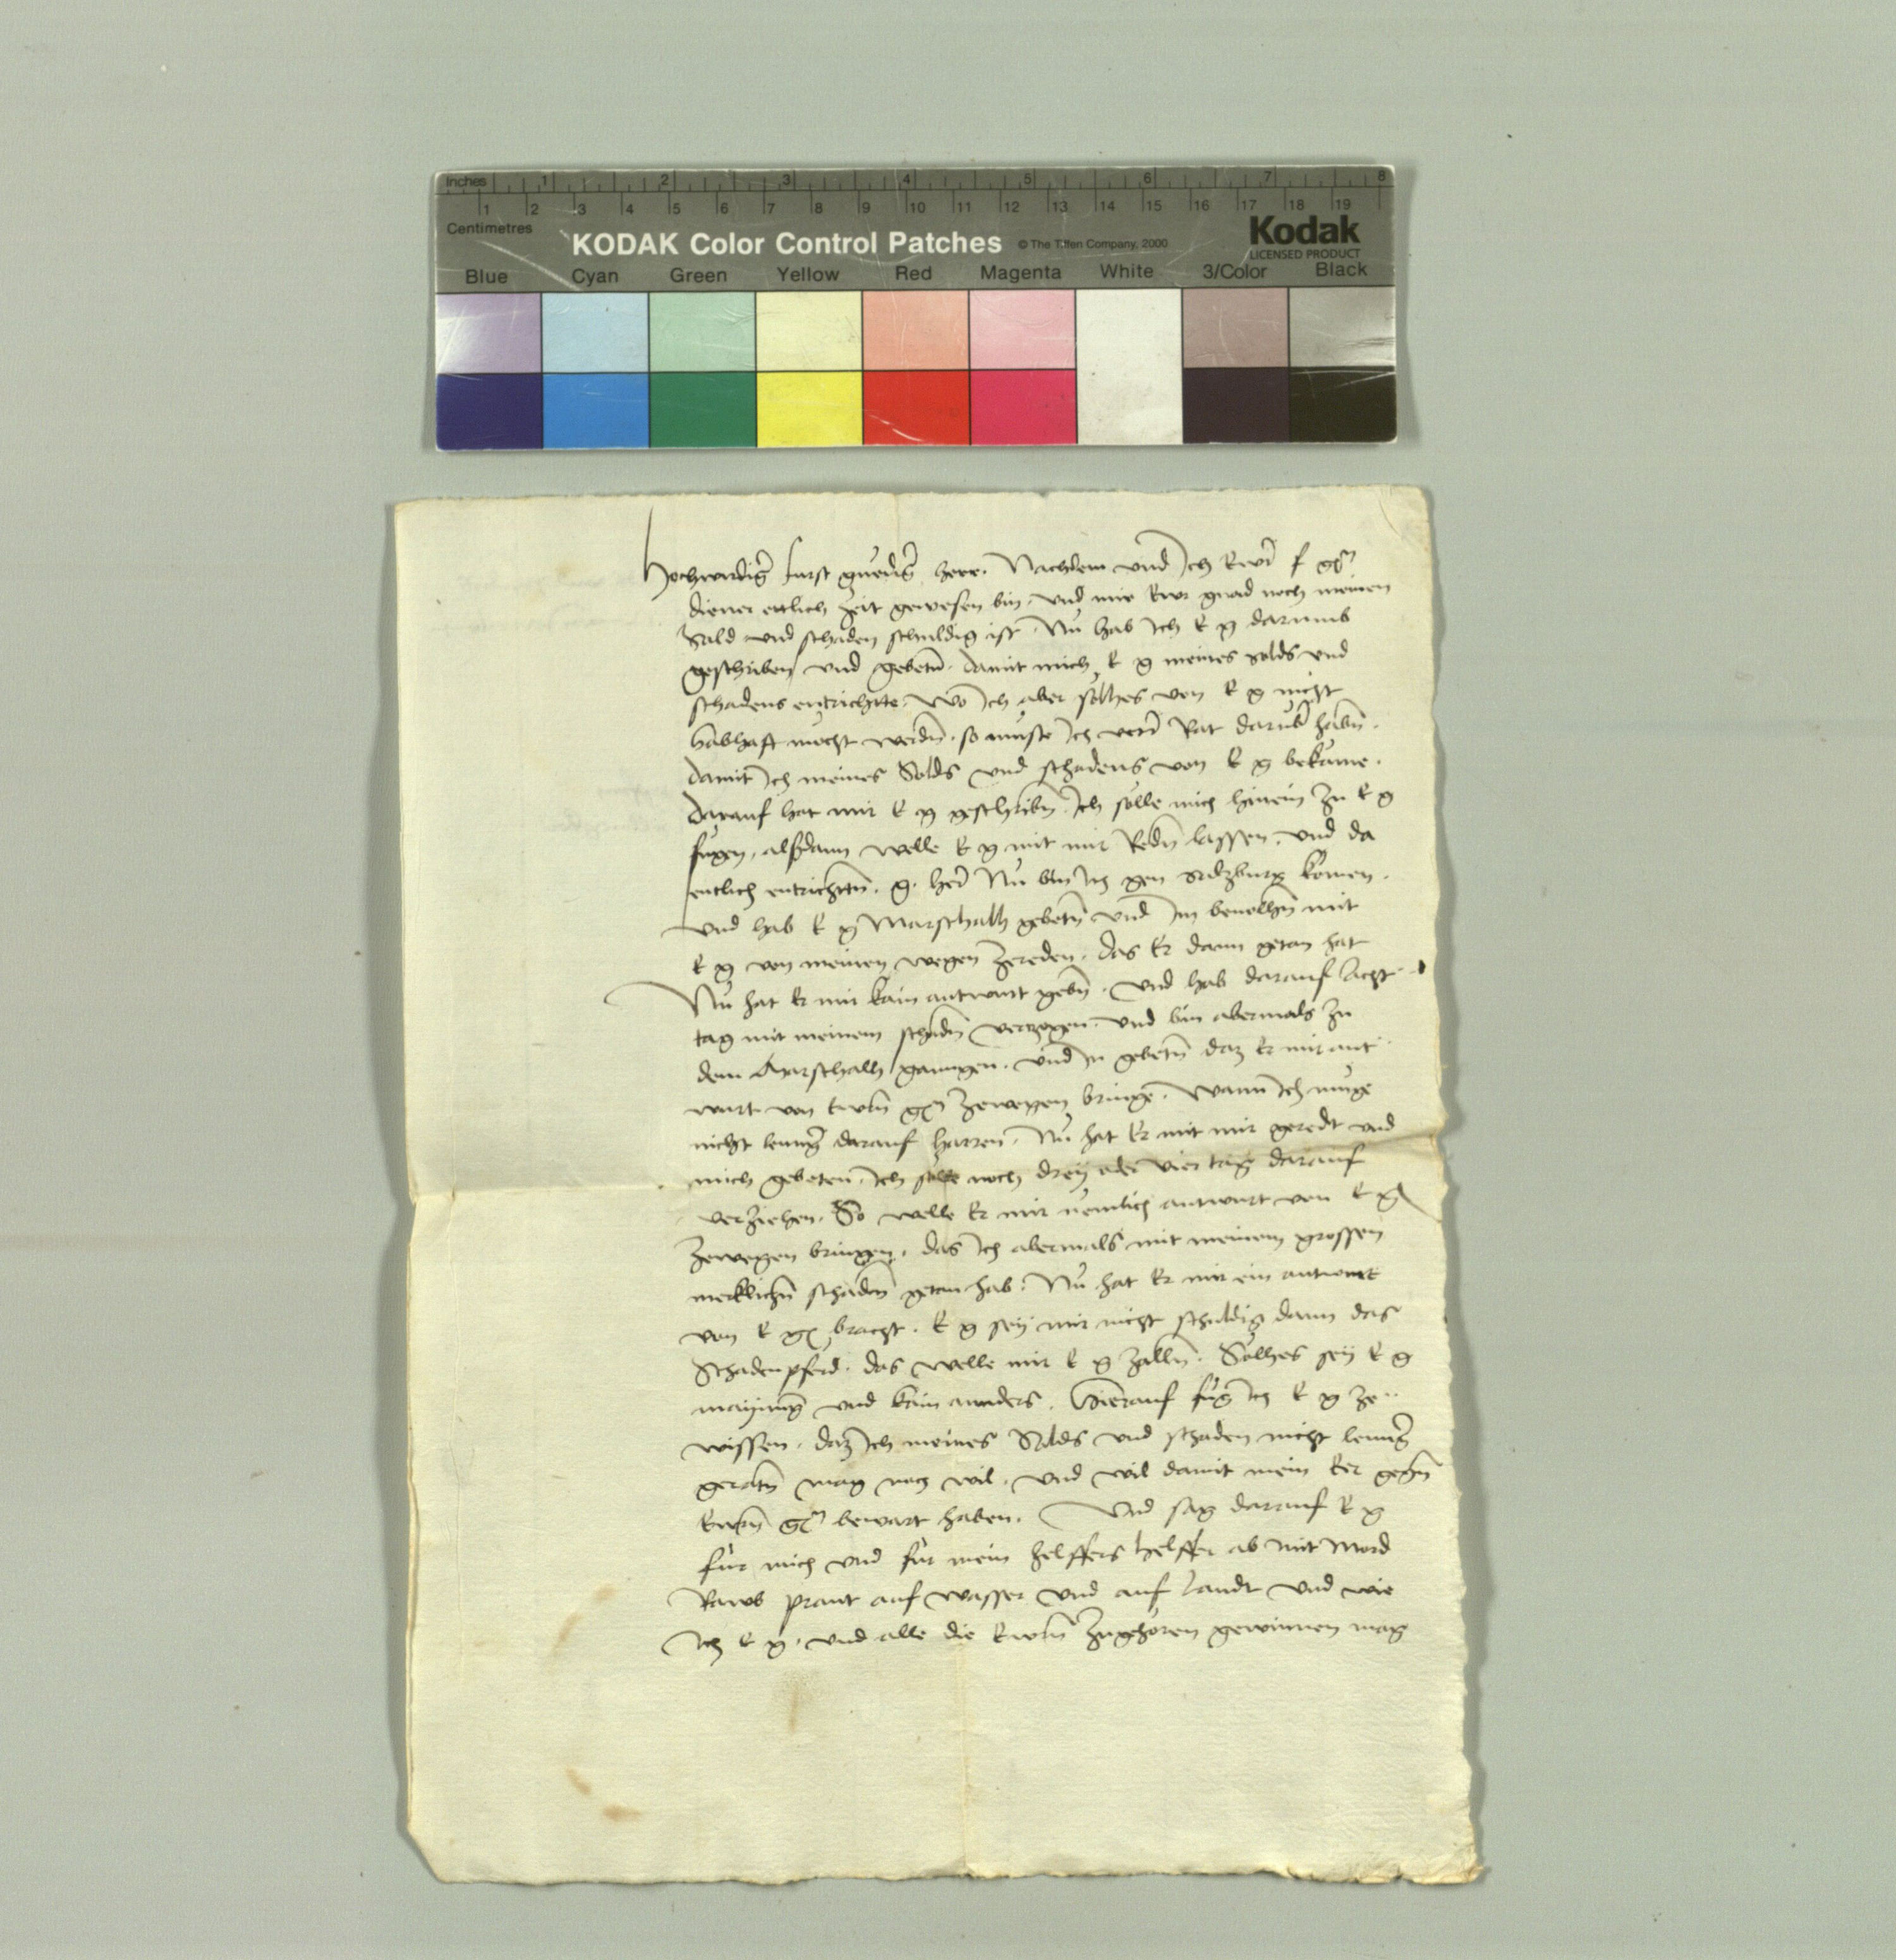 Inches 1 2 3 4 5 6 7 8
1 2 3 4 5 6 7 8 9 10 11 12 13 14 15 16 17 18 19
Centimetres
KODAK Color Control Patches © The Tiffen Company, 2000 Kodak
LICENSED PRODUCT
Blue Cyan Green Yellow Red Magenta White 3/Color Black
Hochwirdigr furst gnedigr herr. Nachdem und Ich Ewr f
diener ettlich zeit gewesen bin, und mir Ewr gnad noch meinen
Sold und schaden schuldig ist. Nu hab Ich E g darumb
geschriben und gebetn. damit mich E g meines solds und
schadens entrichtte. Wo Ich aber solhes von E g nicht
habhaft mocht werdn. so muste Ich Rat darubr habn.
damit Ich meines Solds und schadens von E g bekume.
darauf hat mir E g geschribn. Ich solle mich hinein zu E g
fugen, alsdann welle E g mit mir Redn lassen. und da
entlich entrichttn. g. her Nu bin Ich gen Salzburg komen.
und hab E g Marschalh gebetn und Im bevolhn mit
E g von meinen wegen zereden. das Er dann getan hat
Nu hat Er mir kain antwurt gebn. und hab darauf Acht
tag mit meinem schadn verzogen. und bin abermals zu
dem Marschalh ganngen. und In gebetn daz Er mir ant
wurt von Ewrn zewegen bringe. Wann Ich muge
nicht lenngr darauf harren. Nu hat Er mit mir geredt und
mich gebeten. Ich solte noch drey oder vier tag darauf
verziehen. So welle Er mir nemlich antwurt von E g
zewegen bringen. das Ich abermals mit meinem grossen
merklichn schaden getan hab. Nu hat Er mir ein antwort
von E g bracht. E g sey mir nicht schuldig dann das
Schadenpferd. das welle mir E g zalln. Solhes sey E g
maynung und kain annders. Hierauf fug Ich E g ze
wissen. daz Ich meines Solds und schaden nicht lenngr
geratn mag noch wil. und wil damit mein Er gegen
Ewrn bewart haben. Und sag darauf E g
fur mich und fur mein helffers helffer ab mit Mord
Rawb prant auf wasser und auf Landt und wie
Ich E g. und alle die Ewrn zugehoren gewinnen mag